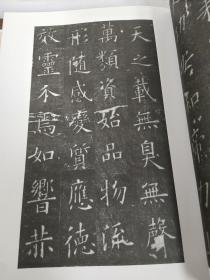 天之載無臭無聲
萬類資始品物流
形隨感變質應德
效靈不焉如響恭